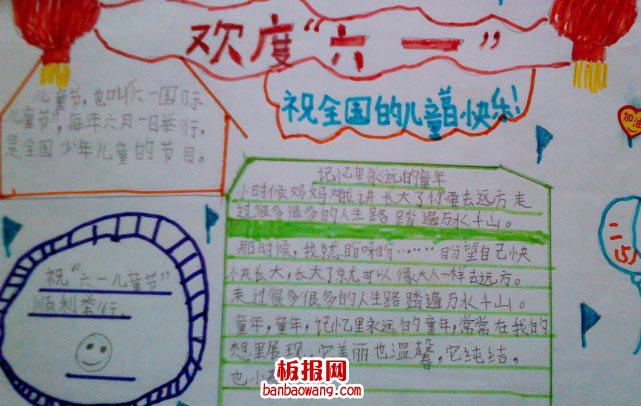 欢度“六一”
祝全国的儿童节快乐！
儿童节，也叫六一国际
儿童节”，每年六月一日举行，
是全国少年儿童的节目。
加油
记忆里永远的童年
小时候妈妈对我讲长大了你要去远方走
过很多很多的人生路踏遍万水千山。
那时候，我就盼呀盼……盼望自己快
快长大，长大了就可以像大人一样去远方。
走过很多很多的人生路踏遍万水千山。
童年，童年，记忆里永远的童年，常常在我的
想里展现，它美丽也温馨，它纯洁，
也
祝“六一儿童节”
顺利举行
板报网
banbaowang.com